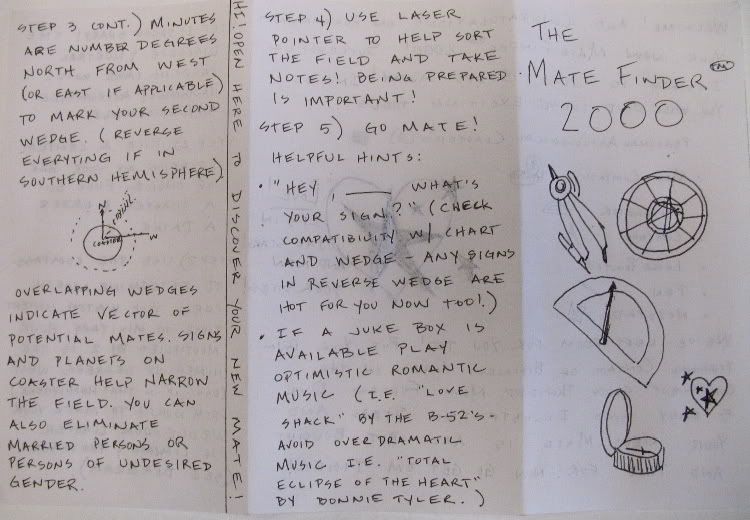 STEP 3 CONT.) MINUTES
ARE NUMBER DEGREES
NORTH FROM WEST
(OR EAST IF APPLICABLE)
TO MARK YOUR SECOND
WEDGE. (REVERSE
EVERYTING IF IN
SOUTHERN HEMISPHERE)
N
W
COASTER
OVERLAPPING WEDGES
INDICATE VECTOR OF
POTENTIAL MATES. SIGNS
AND PLANETS ON
COASTER HELP NARROW
THE FIELD. YOU CAN
ALSO ELIMINATE
MARRIED PERSONS OR
PERSONS OF UNDESIRED
GENDER.
HE! OPEN HERE TO DISCOVER YOUR NEW MATE!
STEP 4) USE LASER
POINTER TO HELP SORT
THE FIELD AND TAKE
NOTES! BEING PREPARED
IS IMPORTANT!
STEP 5) GO MATE!
HELPFUL HINTS:
• "HEY, ____ WHAT'S
YOUR SIGN?" (CHECK
COMPATIBILITY W/ CHART
AND WEDGE - ANY SIGNS
IN REVERSE WEDGE ARE
HOT FOR YOU NOW TOO!)
• IF A JUKE BOX IS
AVAILABLE PLAY
OPTIMISTIC ROMANTIC
MUSIC (I.E. "LOVE
SHACK" BY THE B-52'S -
AVOID OVER DRAMATIC
MUSIC I.E. "TOTAL
ECLIPSE OF THE HEART"
BY BONNIE TYLER.)
THE
MATE FINDER TM
2000